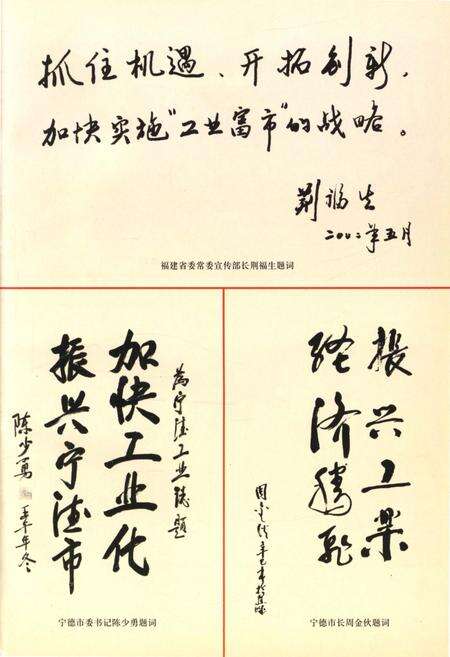 抓住机遇、开拓创新，
加快实施“工业富市”的战略。
荆福生
二00二年五月
福建省委常委宣传部长荆福生题词
为宁德工业志题
加快工业化
振兴宁德市
陈少勇
年冬
宁德市委书记陈少勇题词
振兴工业
经济腾飞
周金伙 辛巳年
宁德市长周金伙题词